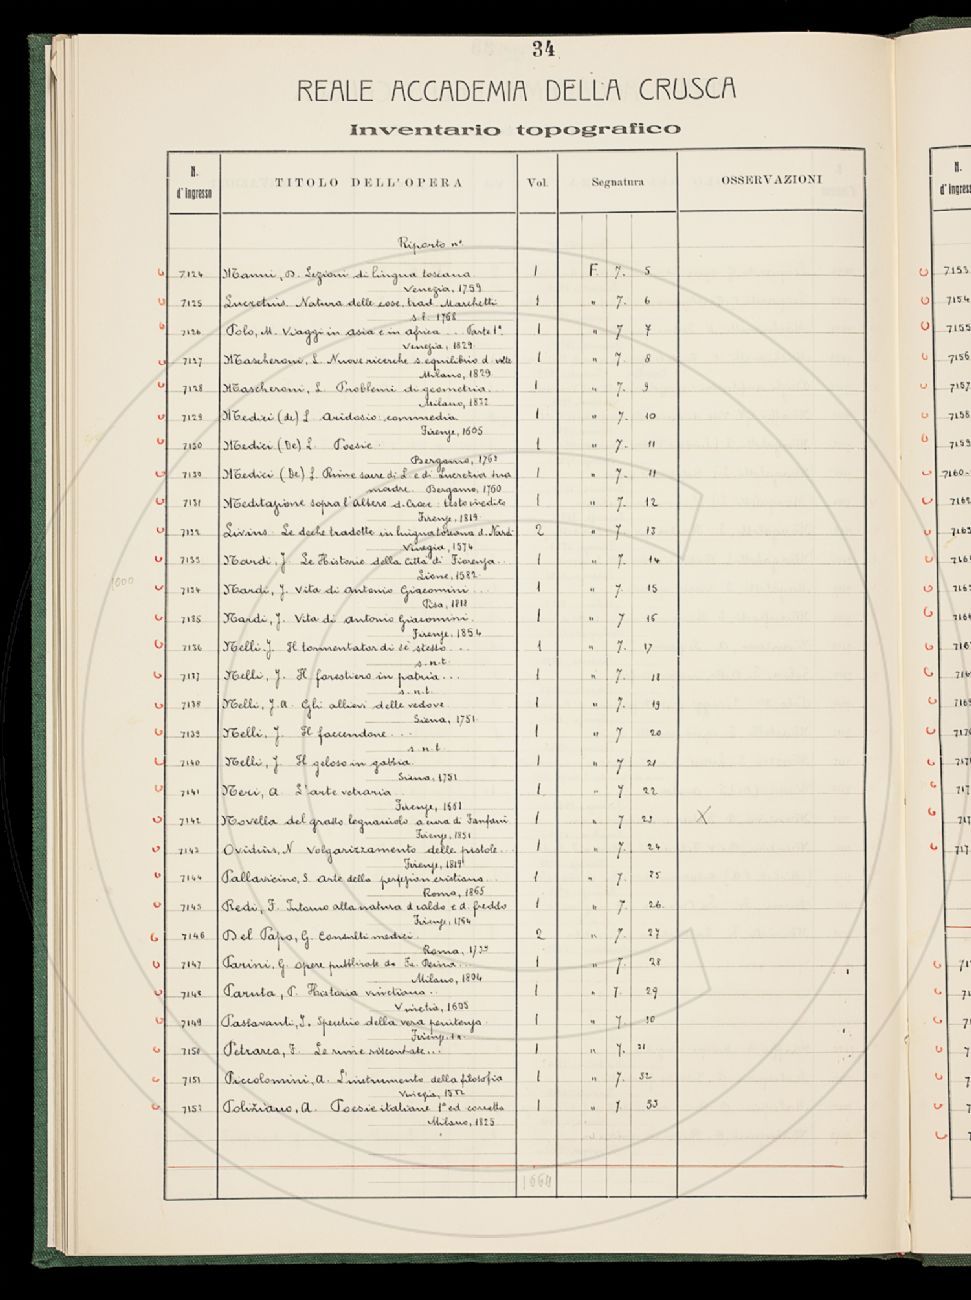 34
REALE ACCADEMIA DELLA CRUSCA
Inventario topografico
N. d'ingresso TITOLO DELL'OPERA Vol. Segnatura OSSERVAZIONI
N. d'ingress
Riporto n°
7124 Manni, D. Lezioni di lingua toscana 1 F. 7. 5
Venezia, 1759
7125 Lucretius. Natura delle cose, trad. Marchetti 1 " 7. 6
s.l. 1768
7126 Polo, M. Viaggi in Asia e in Africa ... Parte 1ª 1 " 7 7
Venezia, 1829
7127 Mascheroni, L. Nuove ricerche s. equilibrio d. volte 1 " 7. 8
Milano, 1829
7128 Mascheroni, L. Problemi di geometria. 1 " 7. 9
Milano, 1832
7129 Medici (de) L. Aridosio: commedia 1 " 7. 10
Firenze, 1605
7130 Medici (De) L. Poesie. 1 " 7. 11
Bergamo, 1763
7130 Medici (De) L. Rime sacre di L. e di Lucrezia sua 1 " 7. 11
madre. Bergamo, 1760
7131 Meditazione sopra l'Albero d. Croce: testo inedito 1 " 7. 12
Firenze, 1819
7132 Livius. Le deche tradotte in lingua toscana d. Nardi 2 " 7 13
Vinegia, 1574
7133 Nardi, J. Le Historie della Città di Fiorenza... 1 " 7. 14
Lione, 1582
7134 Nardi, J. Vita di Antonio Giacomini ... 1 " 7. 15
Pisa, 1818
7135 Nardi, J. Vita di Antonio Giacomini. 1 " 7 16
Firenze, 1854
7136 Nelli, J. Il tormentator di sè stesso ... 1 " 7. 17
s.n.t.
7137 Nelli, J. Il forestiero in patria... 1 " 7. 18
s.n.t.
7138 Nelli, J.A. Gli allievi delle vedove. 1 " 7. 19
Siena, 1751
7139 Nelli, J. Il faccendone ... 1 " 7 20
s.n.t.
7140 Nelli, J. Il geloso in gabbia. 1 " 7 21
Siena, 1751
7141 Neri, A. L'arte vetraria 1 " 7 22
Firenze, 1661
7142 Novella del grasso legnaiuolo a cura di Fanfani 1 " 7 23 X
Firenze, 1851
7143 Ovidius, N. Volgarizzamento delle pistole... 1 " 7. 24
Firenze, 1819
7144 Pallavicino, S. Arte della perfezion cristiana 1 " 7. 25
Roma, 1665
7145 Redi, F. Intorno alla natura d. caldo e d. freddo 1 " 7. 26
Firenze, 1764
7146 Del Papa, G. Consulti medici. 2 " 7. 27
Roma, 1733
7147 Parini, G. opere pubblicate da Fr. Reina... 1 " 7. 28
Milano, 1804
7148 Paruta, P. Historia vinetiana.. 1 " 7. 29
Vinetia, 1605
7149 Passavanti, J. Specchio della vera penitenza. 1 " 7. 30
7150 Petrarca, F. Le rime riscontrate... 1 " 7. 31
7151 Piccolomini, A. L'instrumento della filosofia 1 " 7. 32
Vinegia, 1552
7152 Poliziano, A. Poesie italiane 1ª ed. corretta 1 " 7. 33
Milano, 1825
1000
1664
7153
7154
7155
7156
7157
7158
7159
7160-
7162